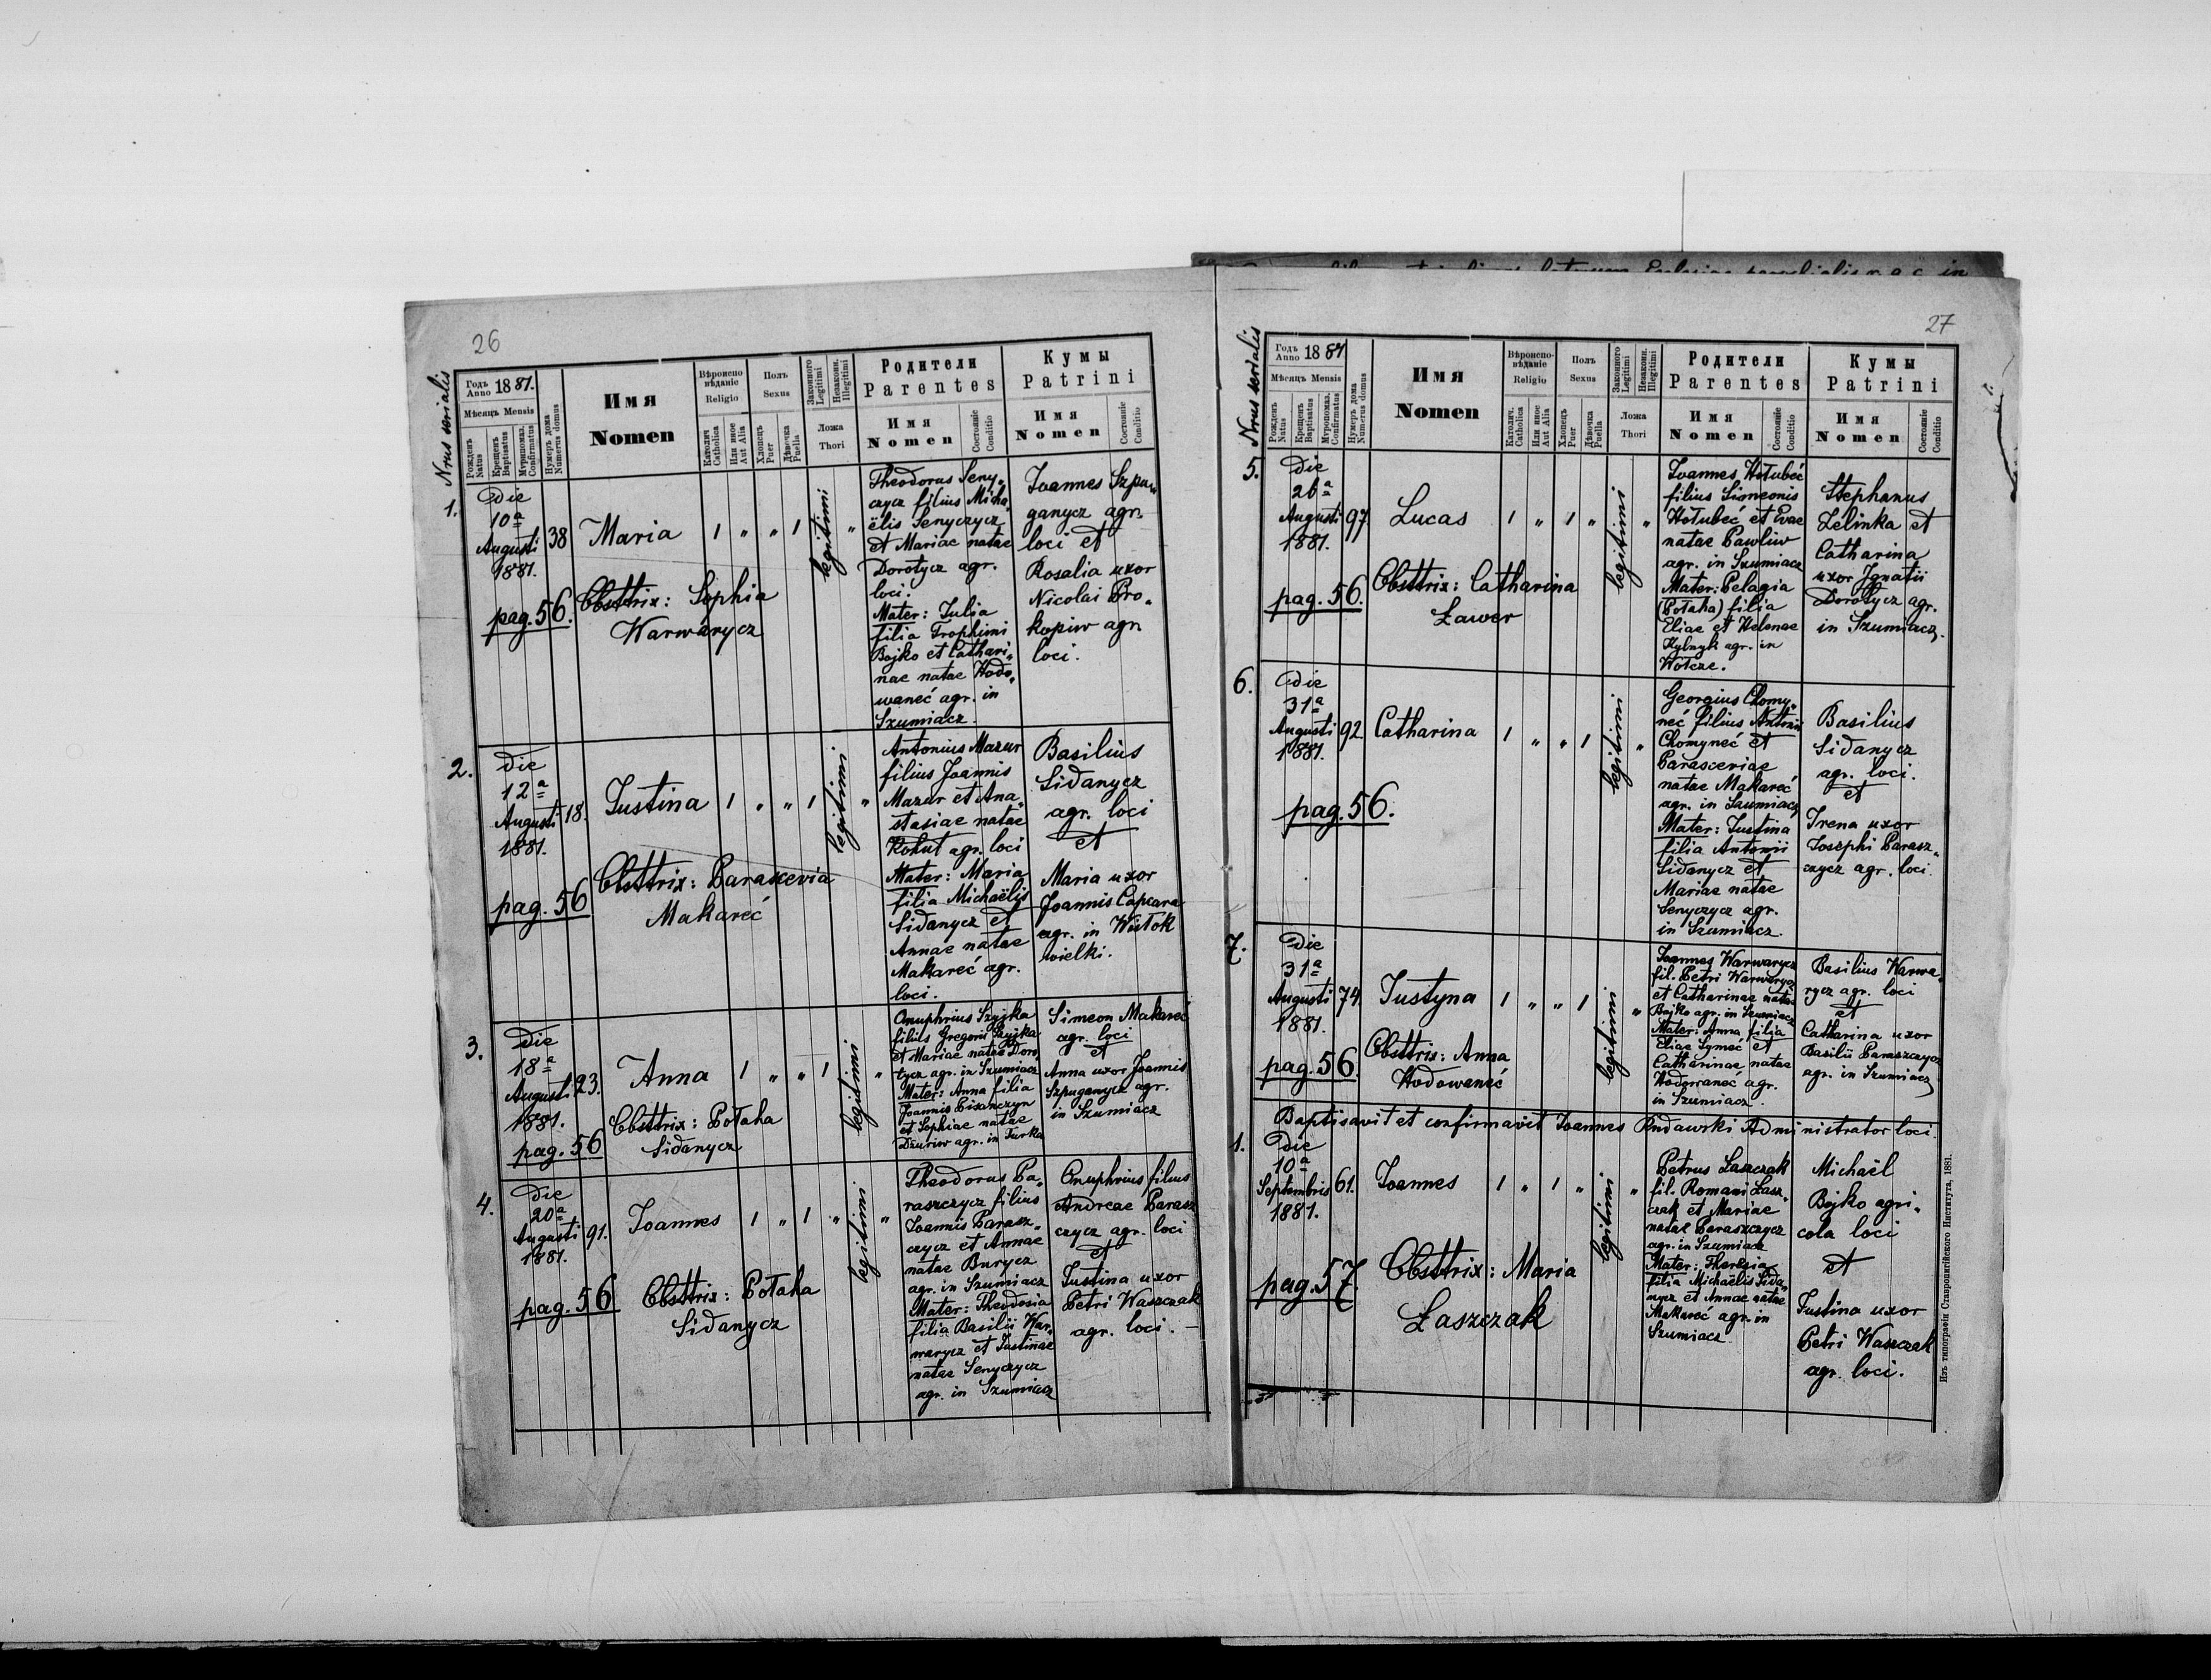 26
Nrus serialis
Годъ Anno 1881.
Мѣсяцъ Mensis
Рожденъ Natus
Крещенъ Baptisatus
Муропомаз. Confirmatus
Нумеръ дома Numerus domus
Имя
Nomen
Вѣроиспо
вѣданіе
Religio
Католич Catholica
Или иное Aut Alia
Полъ
Sexus
Хлопецъ Puer
Дѣвочка Puella
Законного Legitimi
Незаконн. Illegitimi
Ложа
Thori
Родители
Parentes
Имя
Nomen
Состояніе Conditio
Кумы
Patrini
Имя
Nomen
Состояніе Conditio
1.
Die
10a
Augusti
1881.
pag. 56.
38
Maria
1 " " 1
legitimi
"
Obsttrix: Sophia
Warwarycz
Theodorus Seny„
czycz filius Micha„
ëlis Senyczycz
et Mariae natae
Dorotycz agr.
loci.
Mater: Julia
filia Trophimi
Bojko et Cathari„
nae natae Wodo„
waneć agr. in
Szumiacz.
Joannes Szpu„
ganycz agr.
loci et
Rosalia uxor
Nicolai Pro„
kopiw agr.
loci.
2.
Die
12a
Augusti
1881.
pag. 56
18.
Justina
1 " " 1
legitimi
"
Obsttrix: Parascevia
Makareć
Antonius Mazur
filius Joannis
Mazur et Ana„
stasiae natae
Kohut agr. loci
Mater: Maria
filia Michaëlis
Sidanycz et
Annae natae
Makareć agr.
loci.
Basilius
Sidanycz
agr. loci
et
Maria uxor
Joannis Capcara
agr. in Wisłok
wielki.
3.
Die
18a
Augusti
1881.
pag. 56
23.
Anna
1 " " 1
legitimi
"
Obsttrix: Połaha
Sidanycz
Onuphrius Szyjka
filius Gregorii Szyjka
et Mariae natae Doro
tycz agr. in Szumiacz
Mater: Anna filia
Joannis Pisanczyn
et Sophiae natae
Dzuriw agr. in Turka
Simeon Makareć
agr. loci
et
Anna uxor Joannis
Szpuganycz agr.
in Szumiacz
4.
Die
20a
Augusti
1881.
pag. 56
91.
Joannes
1 " 1 "
legitimi
"
Obsttrix: Połaha
Sidanycz
Theodorus Pa„
raszczycz filius
Joannis Parasz„
czycz et Annae
natae Burycz
agr. in Szumiacz
Mater: Theodosia
filia Basilii War„
warycz et Justinae
natae Senyczycz
agr. in Szumiacz
Onuphrius filius
Andreae Parasz
czycz agr. loci
et
Justina uxor
Petri Waszczak
agr. loci. –
27
Nrus serialis
Годъ Anno 1881
Мѣсяцъ Mensis
Рожденъ Natus
Крещенъ Baptisatus
Муропомаз. Confirmatus
Нумеръ дома Numerus domus
Имя
Nomen
Вѣроиспо-
вѣданіе
Religio
Католич. Catholica
Или иное Aut Alia
Полъ
Sexus
Хлопецъ Puer
Дѣвочка Puella
Законного Legitimi
Незаконн. Illegitimi
Ложа
Thori
Родители
Parentes
Имя
Nomen
Состояніе Conditio
Кумы
Patrini
Имя
Nomen
Состояніе Conditio
5.
Die
26a
Augusti
1881.
pag. 56.
97.
Lucas
1 " 1 "
legitimi
"
Obsttrix: Catharina
Ławer
Joannes Hołubeć
filius Simeonis
Hołubeć et Evae
natae Pawliw
agr. in Szumiacz
Mater: Pelagia
(Połaha) filia
Eliae et Helenae
Hylnyk agr. in
Wołcze.
Stephanus
Zelinka et
Catharina
uxor Ignatii
Dorotycz agr.
in Szumiacz.
6.
Die
31a
Augusti
1881.
pag. 56.
92.
Catharina
1 " " 1
legitimi
"
Georgius Chomy„
neć filius Antonii
Chomyneć et
Parasceviae
natae Makareć
agr. in Szumiacz
Mater: Justina
filia Antonii
Sidanycz et
Mariae natae
Senyczycz agr.
in Szumiacz.
Basilius
Sidanycz
agr. loci.
et
Irena uxor
Josephi Parasz„
czycz agr. loci.
7.
Die
31a
Augusti
1881.
pag. 56.
74.
Justyna
1 " " 1
legitimi
"
Obsttrix: Anna
Wodowaneć
Joannes Warwarycz
fil. Petri Warwarycz
et Catharinae natae
Bojko agr. in Szumiacz
Mater: Anna filia
Eliae Symeć et
Catharinae natae
Wodowaneć agr.
in Szumiacz.
Basilius Warwa„
rycz agr. loci
et
Catharina uxor
Basilii Paraszczycz
agr. in Szumiacz
Baptisavit et confirmavit Joannes Rudawski Administrator loci.
1.
Die
10a
Septembris
1881.
pag. 57.
61.
Joannes
1 " 1 "
legitimi
"
Obsttrix: Maria
Łaszczak
Petrus Laszczak
fil. Romani Łasz„
czak et Mariae
natae Paraszczycz
agr. in Szumiacz
Mater: Theresia
filia Michaëlis Sida„
nycz et Annae natae
Makareć agr. in
Szumiacz.
Michaël
Bojko agri„
cola loci
et
Justina uxor
Petri Waszczak
agr. loci.
Изъ типографіи Ставропигійского Института, 1881.